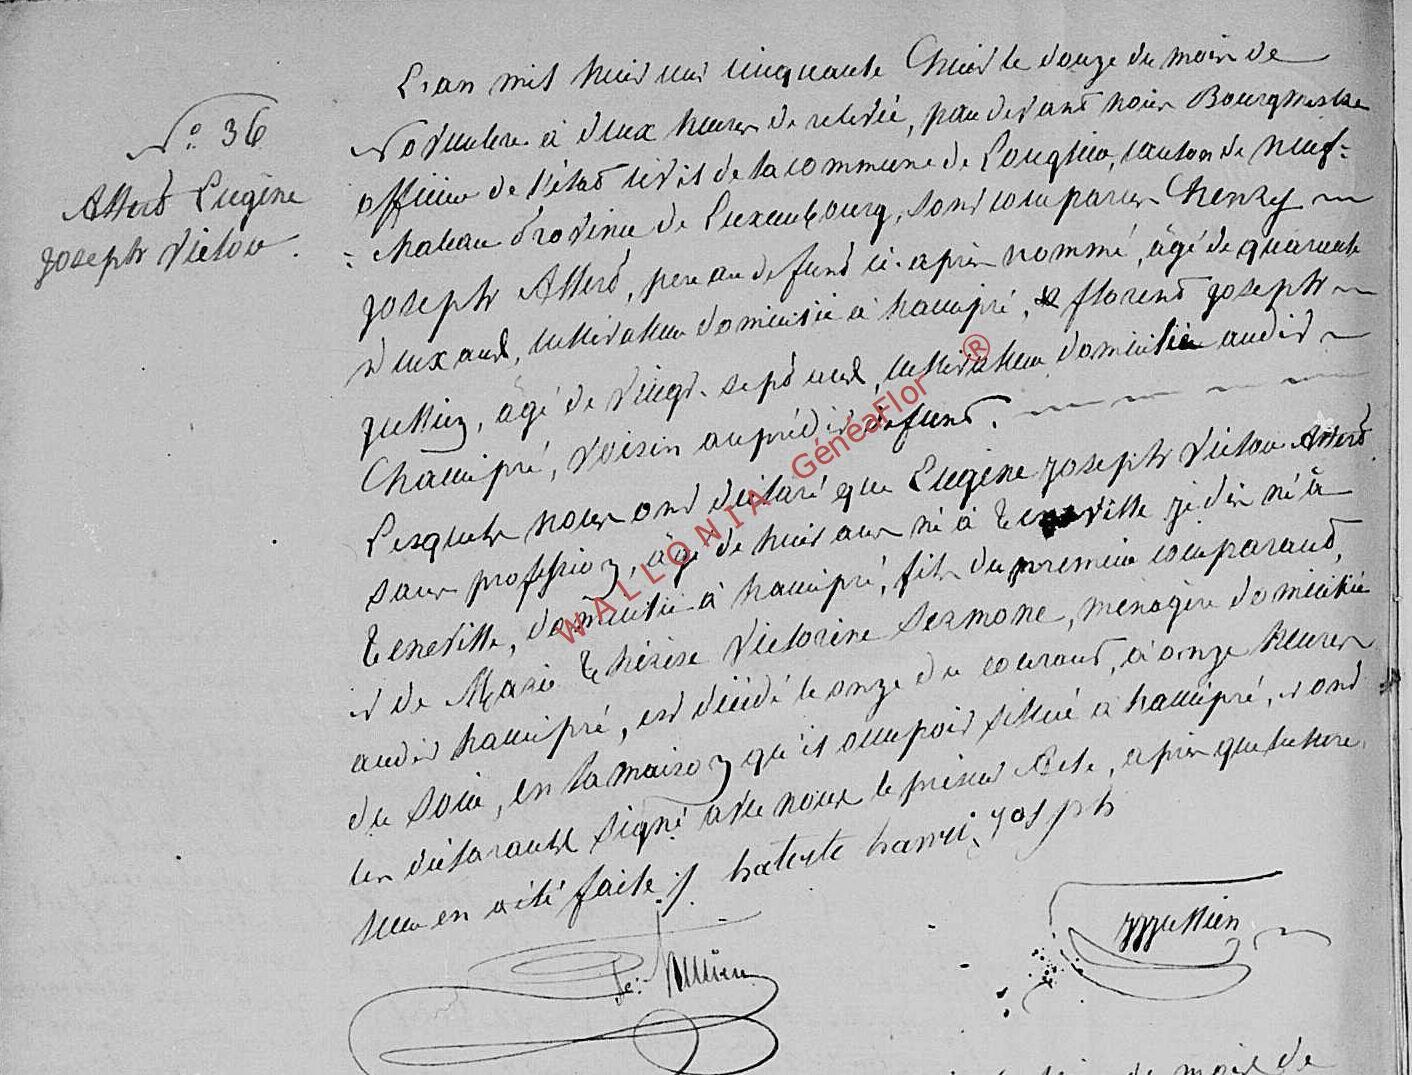 N.° 36
Attert Eugène
Joseph Victor.
L'an mil huit cent cinquante huit le douze du mois de
Novembre à deux heures de relevée, pardevant nous Bourgmestre
officier de l'état civil de la commune de Longlier, canton de neuf-
-chateau province de Luxembourg, sont comparus henry
Joseph Attert, père au defunt ci-après nommé, âgé de quarante
deux ans, cultivateur domicilié à hamipré, & florent Joseph
Jullien, âgé de vingt-sept ans, cultivateur domicilié audit
hamipré, voisin au prédit defunt.
Lesquels nous ont déclaré que Eugène Joseph Victor Attert
sans profession, âgé de huit ans né à Teneville je dis né à
Teneville, domicilié à hamipré, fils du premier comparant,
et de Marie Thérèse Victorine Sermone, ménagère domiciliée
audit hamipré, est décédé le onze du courant, à onze heures
du soir, en la maison qu'il occupoit située à hamipré, et ont
les déclarants signé avec nous le présent Acte, après que lecture
leur en a été faite ./. hateste hanri joseph
JJJullien
WALLONIA GénéaFlor ®
du mois de